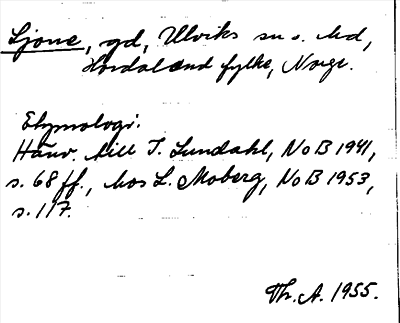 Ljone, gd, Ulviks sn o. hd,
Hordaland fylke, Norge.
Etymologi:
Hänv. till I. Lundahl, NoB 1941,
s. 68 ff., hos L. Moberg, NoB 1953,
s. 117.
Th. A. 1955.